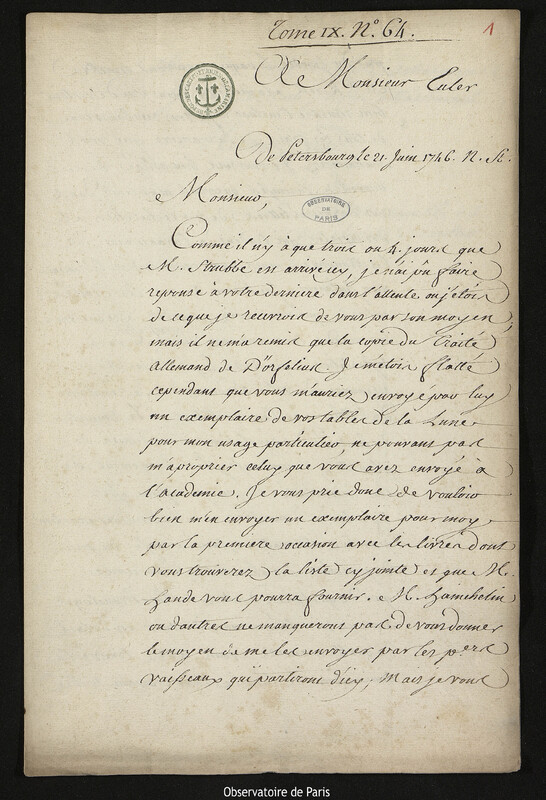 Tome IX. N.º 64.
1
A Monsieur Euler
De Petersbourg le 21. Juin 1746. N. St.
Monsieur,
OBSERVATOIRE
DE
PARIS
Comme il n'y à que trois ou 4. jours que
M. Strubbe est arrivé icy, je n'ai pû faire
reponse à votre derniere dans l'attente ou j'etois
de ce que je recevrois de vous par son moyen,
mais il ne m'a remis que la copie du Traité
allemand de D'orfelius. Je m'etois flatté
cependant que vous m'auriez envoyé par luy
un exemplaire de vos tables de la Lune
pour mon usage particulier, ne pouvant pas
m'aproprier celuy que vous avez envoyé à
l'academie. Je vous prie donc de vouloir
bien m'en envoyer un exemplaire pour moy
par la premiere occasion avec les livres dont
vous trouverez la liste cy jointe et que M.
Haude vous pourra fournir. M.
ou d'autres ne manqueront pas de vous donner
le moyen de me les envoyer par les p.ers
vaisseaux qui partiront d'icy; Mais je vous
Observatoire de Paris